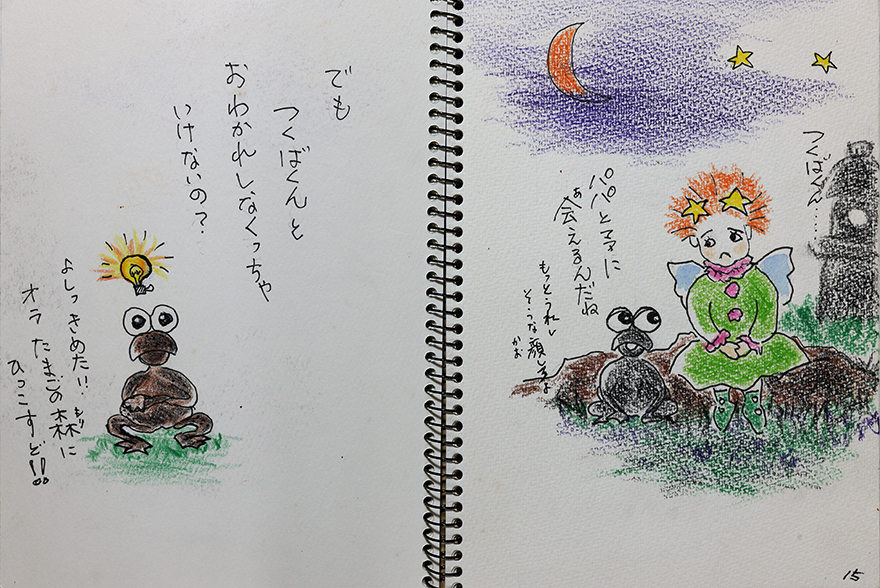 つくばくん……
パパとママに
会えるんだね
あ
もっとうれし
そうな顔しろよ
かお
でも
つくばくんと
おわかれしなくっちゃ
いけないの？
よしっきめたい!
オラたまごの森に
もり
ひっこすど!!
15